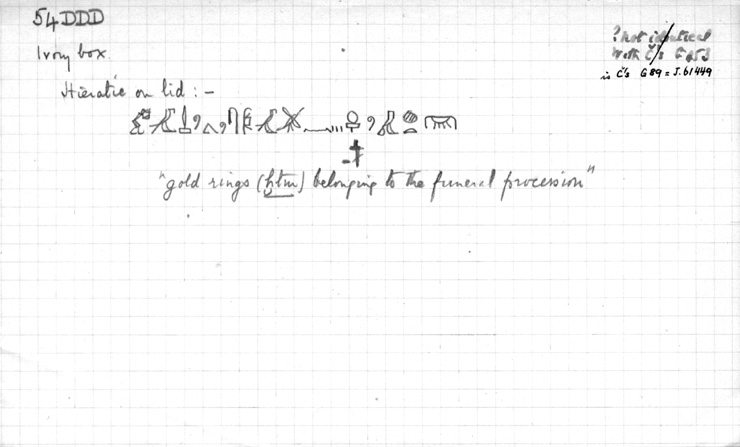 54DDD
? not identical
with Č's G453
is Č's G 89 = J. 61449
Ivory box
Hieratic on lid : -
"gold rings (ḫtm) belonging to the funeral procession"